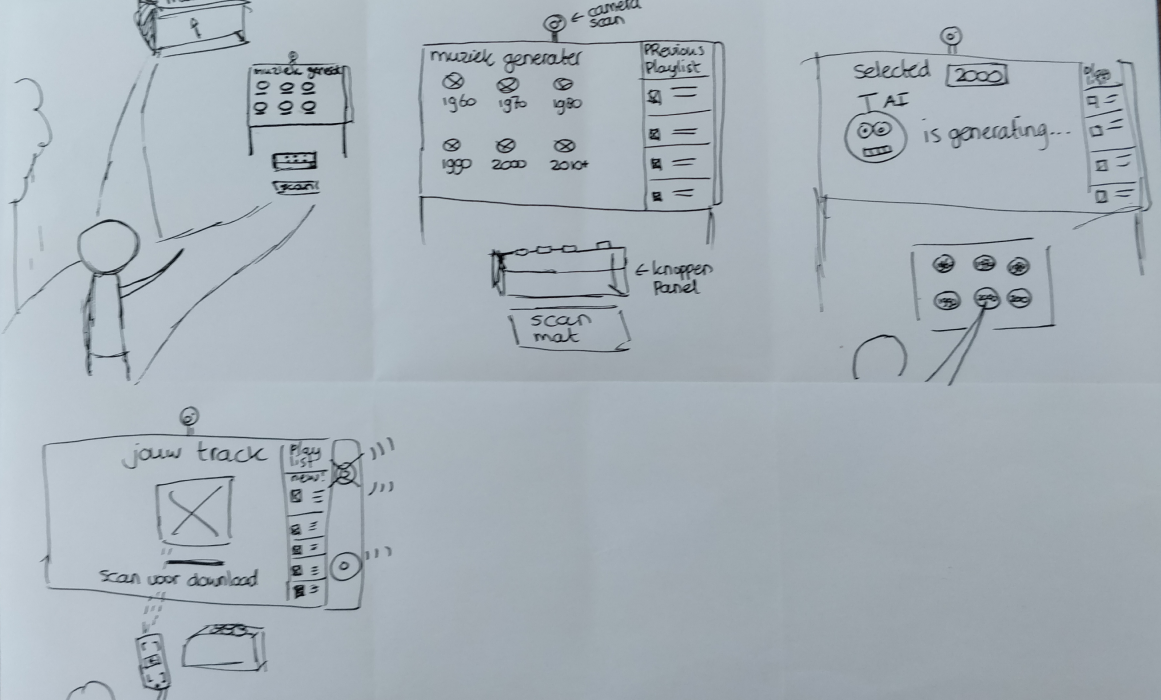 muziek
scan
← camera
scan
muziek generater
1960
1970
1980
1990
2000
2010+
PRevious
Playlist
← knoppen
Panel
scan
mat
selected 2000
AI
is generating...
1990
2000
jouw track
Play
list
new!
scan voor download